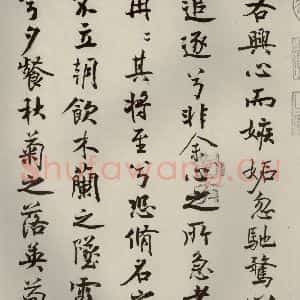 各興心而嫉妒忽馳騖以
追逐兮非余心之所急老
冉〻其將至兮恐脩名
不立朝飲木蘭之墜露
兮夕餐秋菊之落英苟
Shufawang.Cn